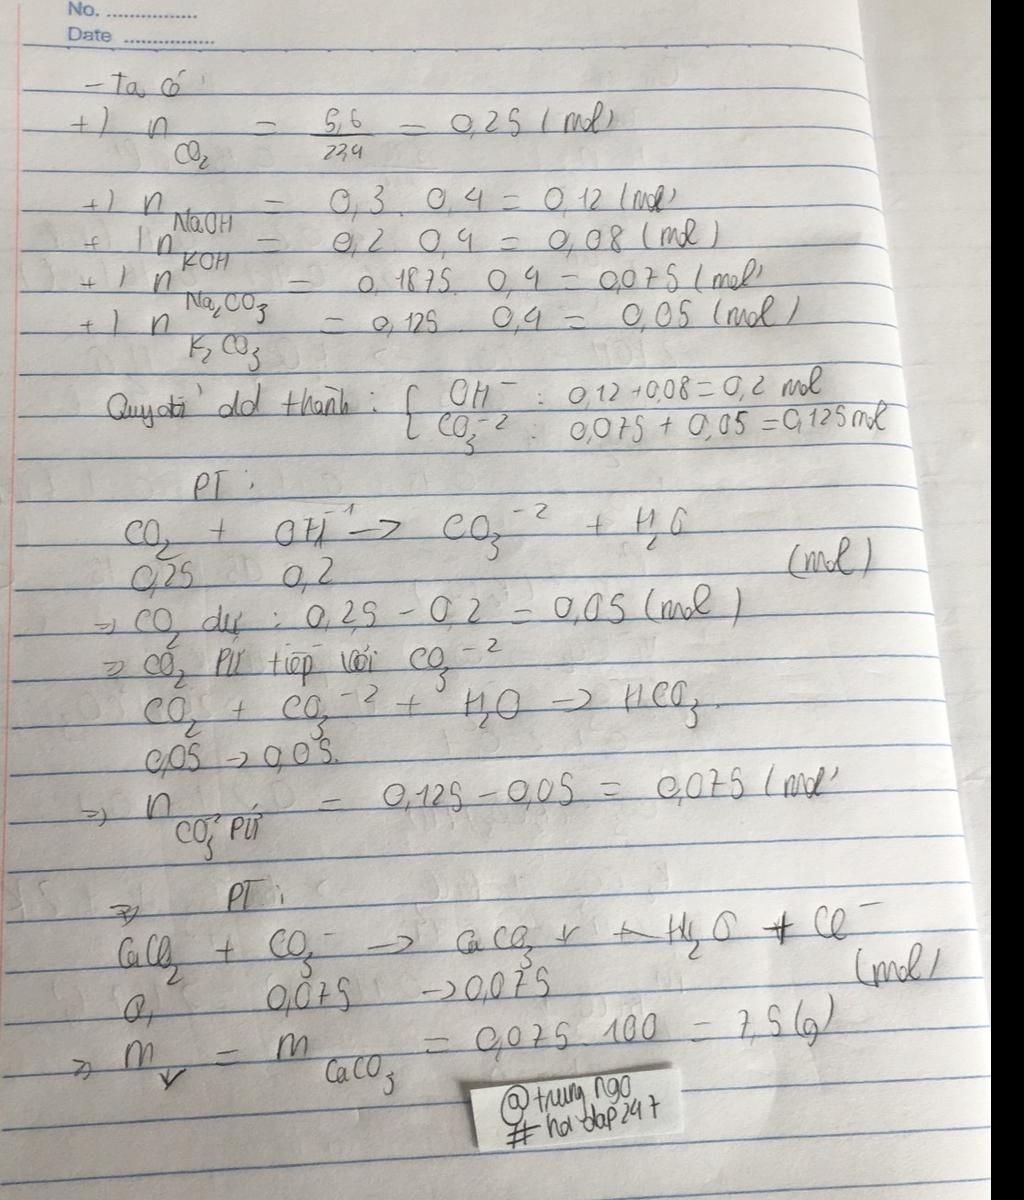 No. ................
Date ................
- Ta có
+) n CO2 = 5,6/22,4 = 0,25 (mol)
+) n NaOH = 0,3 . 0,4 = 0,12 (mol)
+) n KOH = 0,2 0,4 = 0,08 (mol)
+) n Na2CO3 = 0,1875. 0,4 = 0,075 (mol)
+) n K2CO3 = 0,125 0,4 = 0,05 (mol)
dd thành : { OH⁻ : 0,12 + 0,08 = 0,2 mol
CO3⁻² : 0,075 + 0,05 = 0,125 mol
PT :
CO2 + OH⁻¹ -> CO3⁻² + H2O
0,25 0,2 (mol)
=> CO2 dư : 0,25 - 0,2 = 0,05 (mol)
=> CO2 PƯ tiếp với CO3⁻²
CO2 + CO3⁻² + H2O -> HCO3.
0,05 -> 0,05.
=> n CO3⁻² PƯ = 0,125 - 0,05 = 0,075 (mol)
=> PT :
CaCl2 + CO3⁻ -> CaCO3 ↓ + H2O + Cl⁻
0, 0,075 -> 0,075 (mol)
=> m↓ = m CaCO3 = 0,075 . 100 = 7,5 (g)
@trung ngo
# hoidap247